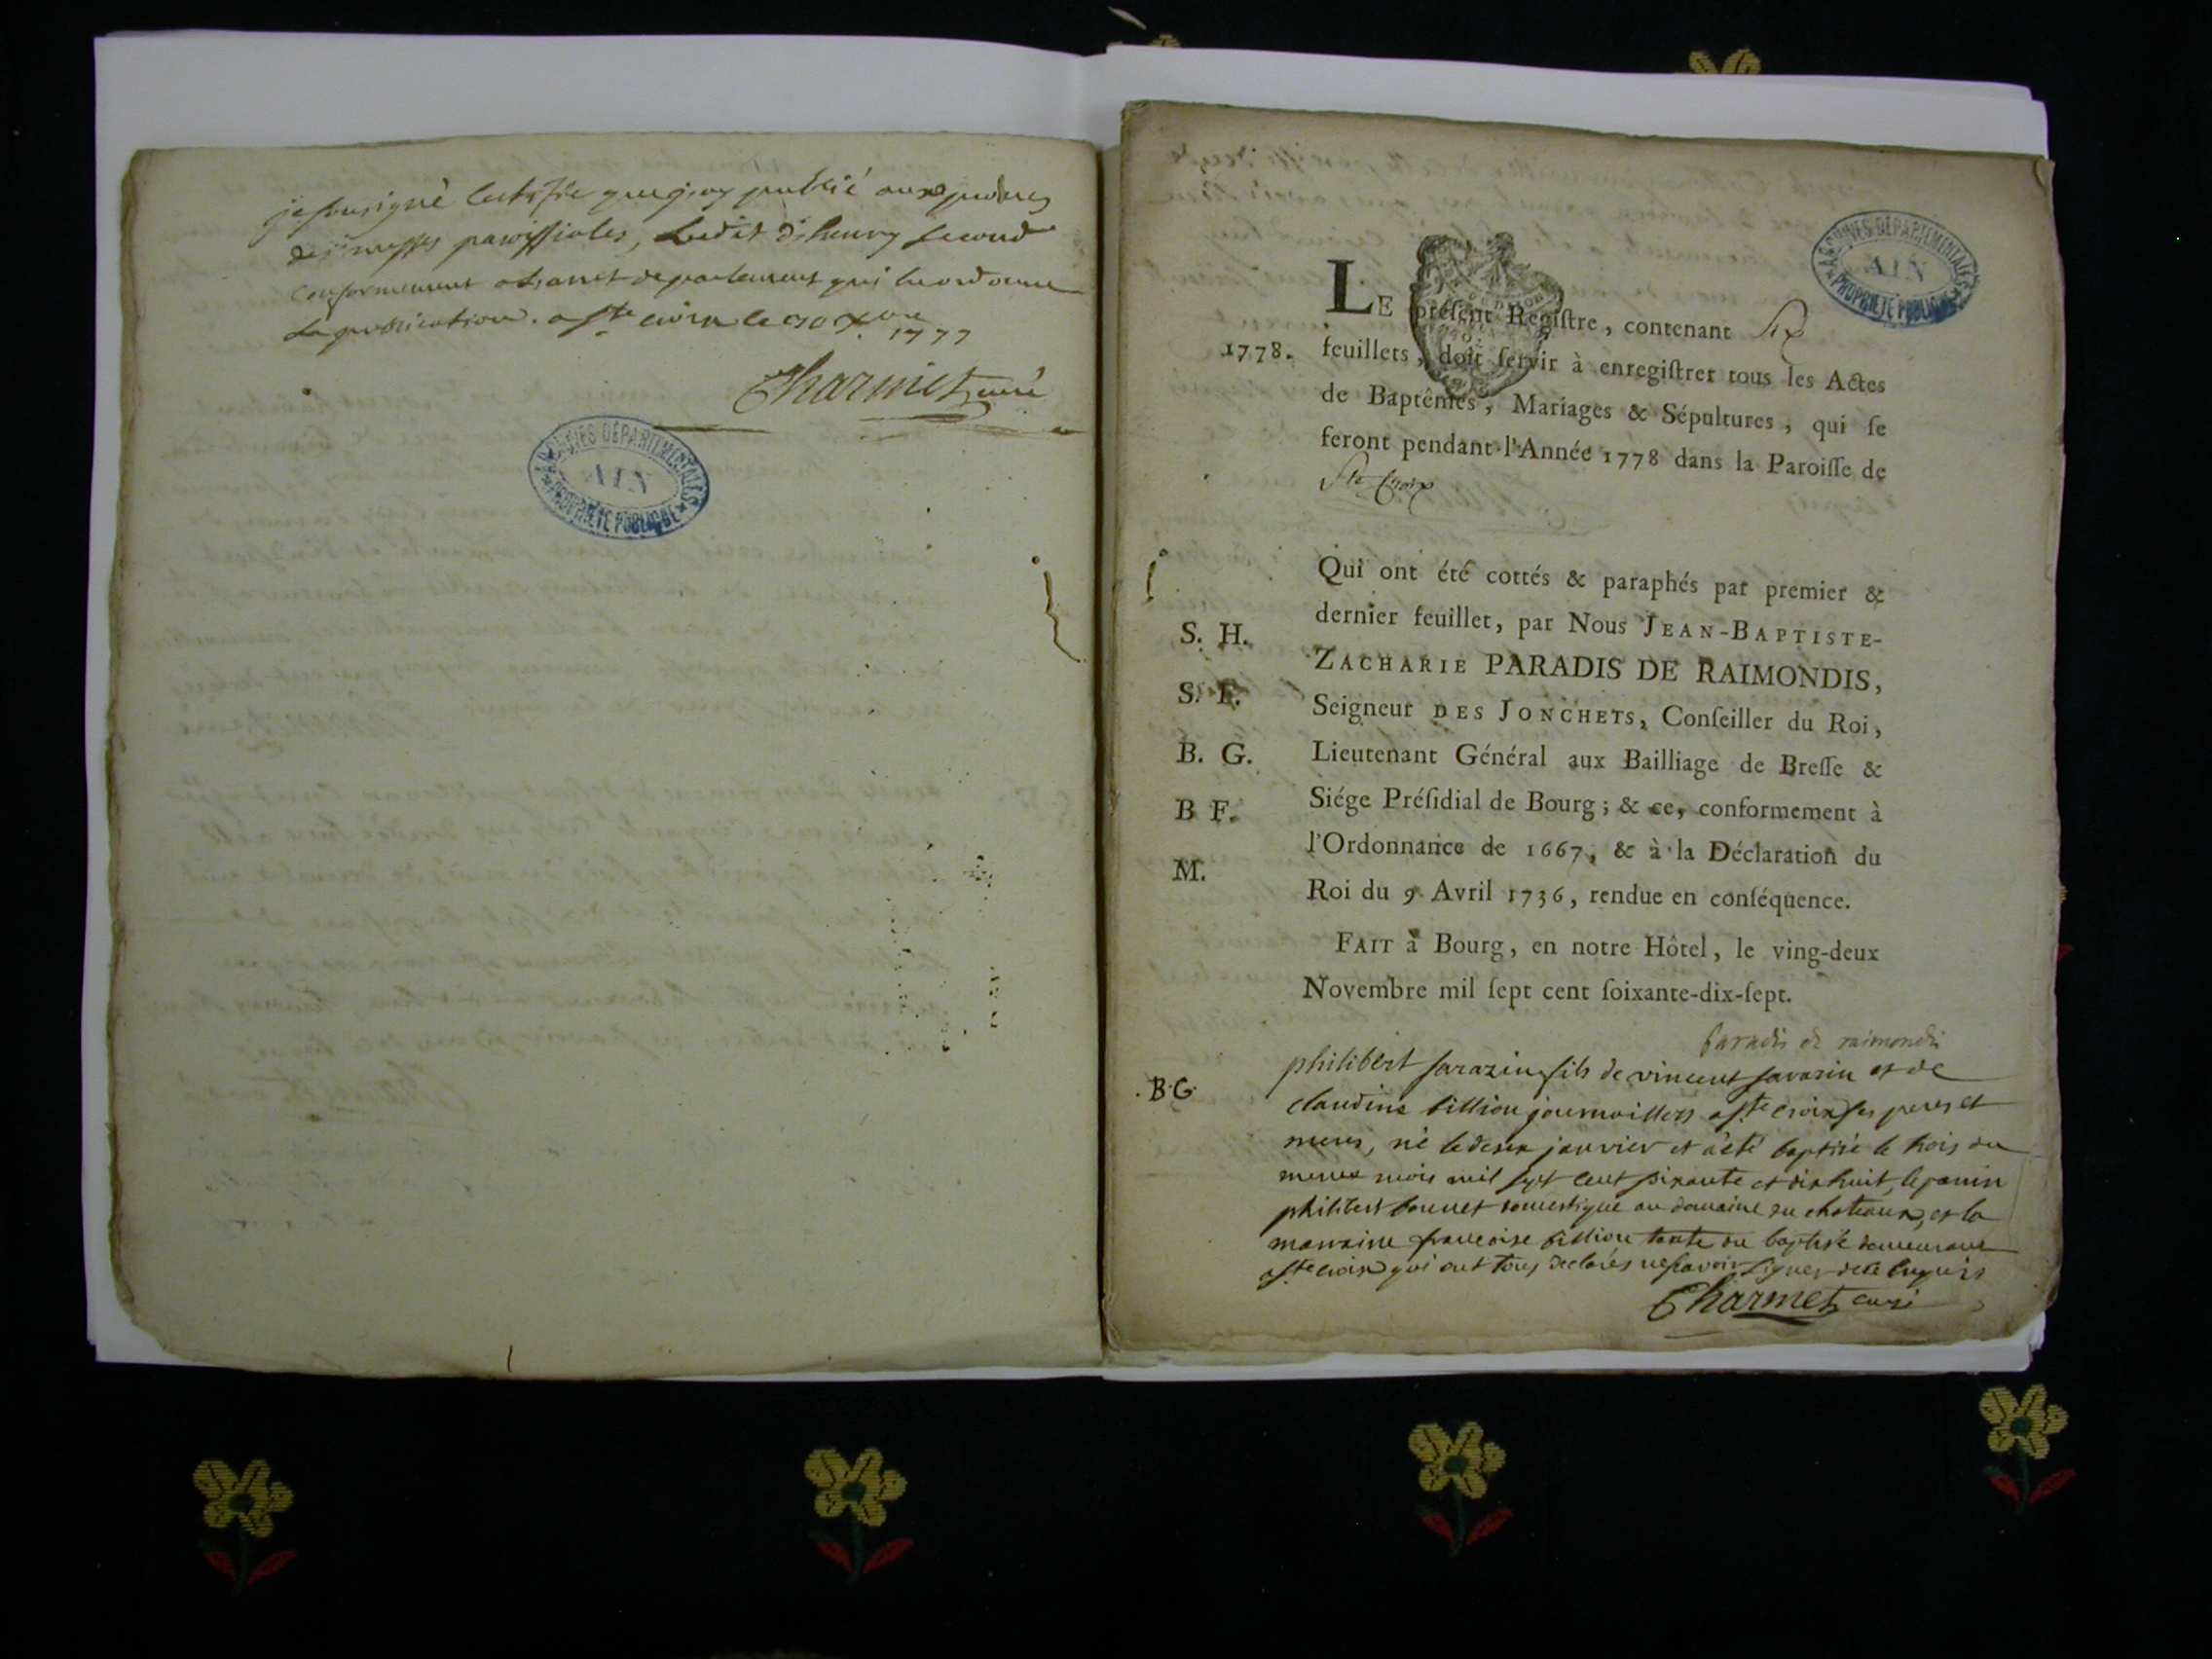 je sousigné certifie que j'ay publié aux prones
de messes paroissiales, L'edit d'henry second
conformement a L'arret de parlement qui en ordonne
La publication. a Ste croix le 30 Xbre 1777
Charmet curé
ARCHIVES DÉPARTEMENTALES
AIN
PROPRIÉTÉ PUBLIQUE
ARCHIVES DÉPARTEMENTALES
AIN
PROPRIÉTÉ PUBLIQUE
LE préſent Regiſtre, contenant Six
1778. feuillets, doit ſervir à enregiſtrer tous les Actes
de Baptêmes, Mariages & Sépultures, qui ſe
feront pendant l'Année 1778 dans la Paroiſſe de
Ste Croix
Qui ont été cottés & paraphés par premier &
dernier feuillet, par Nous JEAN-BAPTISTE-
S. H.
ZACHARIE PARADIS DE RAIMONDIS,
S. F.
Seigneur DES JONCHETS, Conſeiller du Roi,
B. G.
Lieutenant Général aux Bailliage de Breſſe &
B F.
Siége Préſidial de Bourg; & ce, conformement à
l'Ordonnance de 1667, & à la Déclaration du
M.
Roi du 9 Avril 1736, rendue en conſéquence.
FAIT à Bourg, en notre Hôtel, le ving-deux
Novembre mil ſept cent ſoixante-dix-ſept.
Paradis de raimondis
B. G.
philibert sarazin fils de vincent savarin et de
claudine billion journailliers a Ste croix ses peres et
meres, né le deux janvier et a été baptisé le trois du
meme mois mil sept cent soixante et dix huit, le parrin
philibert bonnet domestique au domaine du chateaux, et la
marraine francoise billion tante du baptisé demeurant
a Ste croix qui ont tous declarés ne savoir signer de ce enquis
Charmet curé